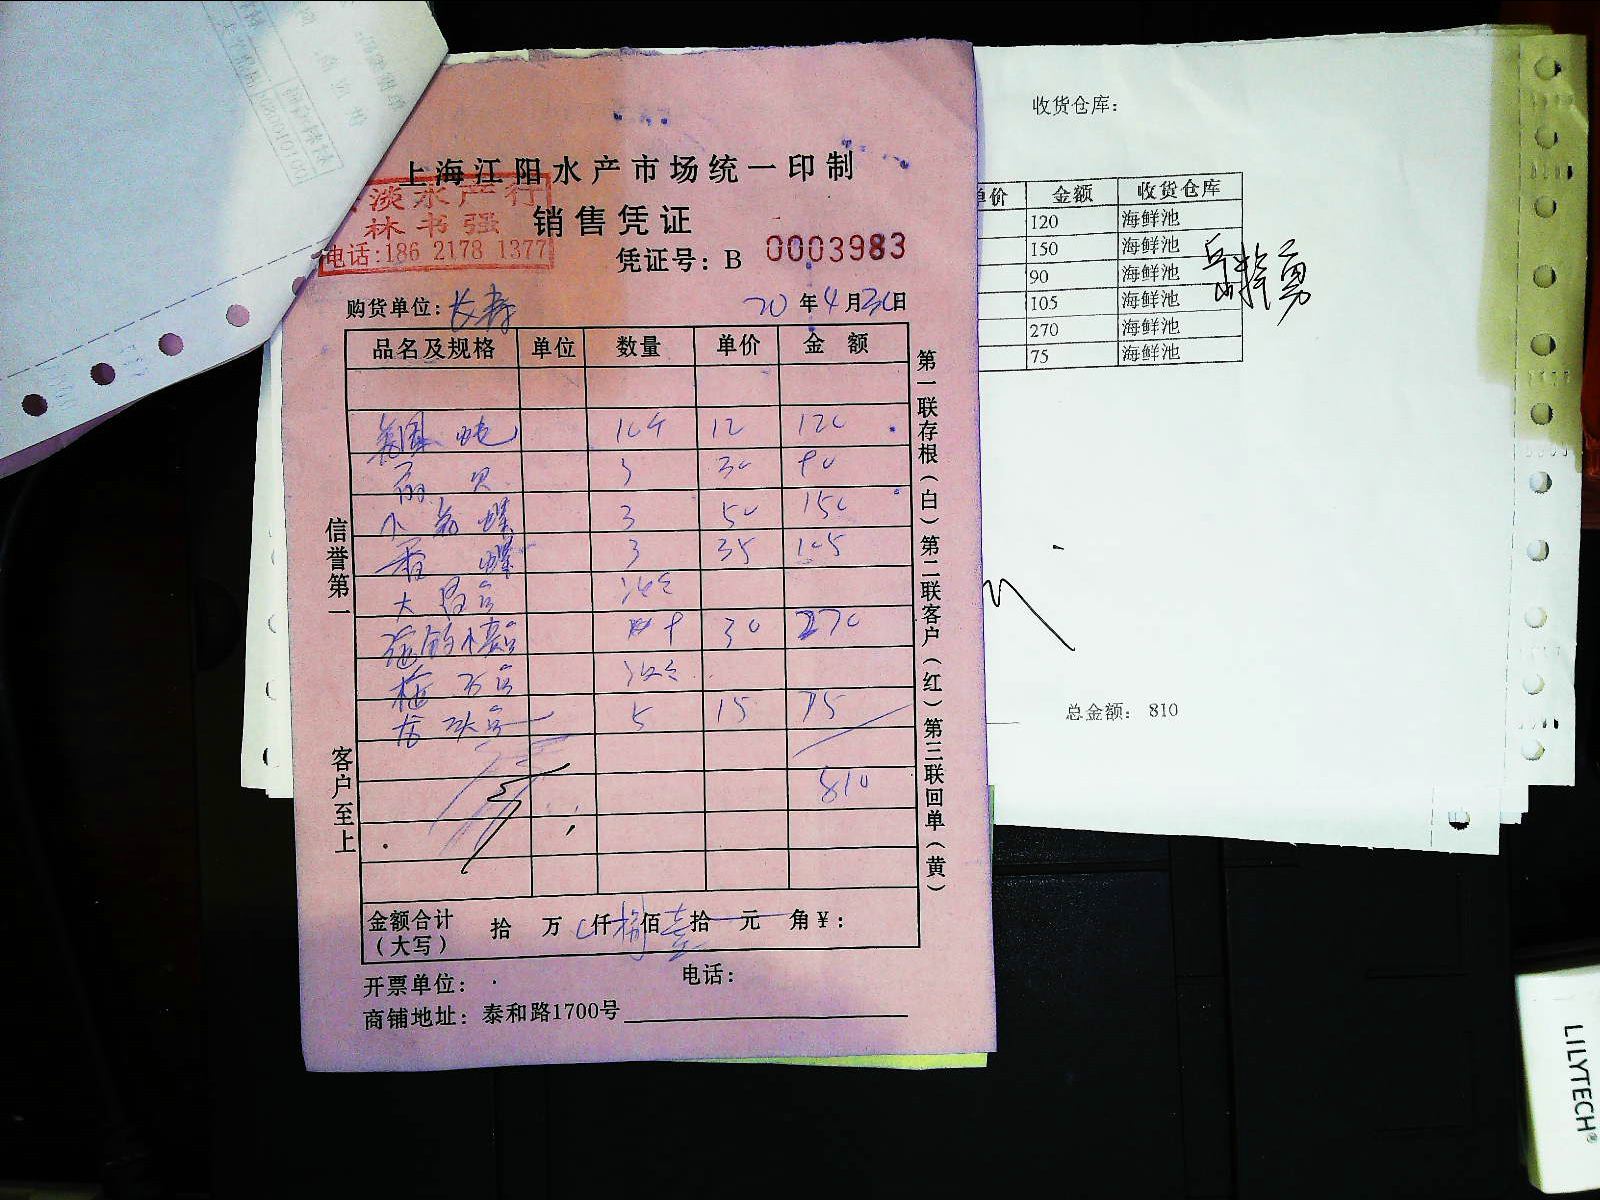 上海江阳水产市场统一印制
淡水产行
林书强
电话:186 2178 1377
销售凭证
凭证号: B 0003983
购货单位: 长寿
20 年 4 月 30 日
品名及规格 单位 数量 单价 金额
美国 10斤 12 120
贝 3 30 90
小 螺 3 50 150
香螺 3 35 105
大
30 270
5 15 75
810
金额合计(大写) 拾 万 仟 捌 佰 壹 拾 元 角 ¥:
开票单位: 电话:
商铺地址: 泰和路1700号
信誉第一
客户至上
第一联存根(白)第二联客户(红)第三联回单(黄)
收货仓库:
单价 金额 收货仓库
120 海鲜池
150 海鲜池
90 海鲜池
105 海鲜池
270 海鲜池
75 海鲜池
总金额: 810
LILYTECH